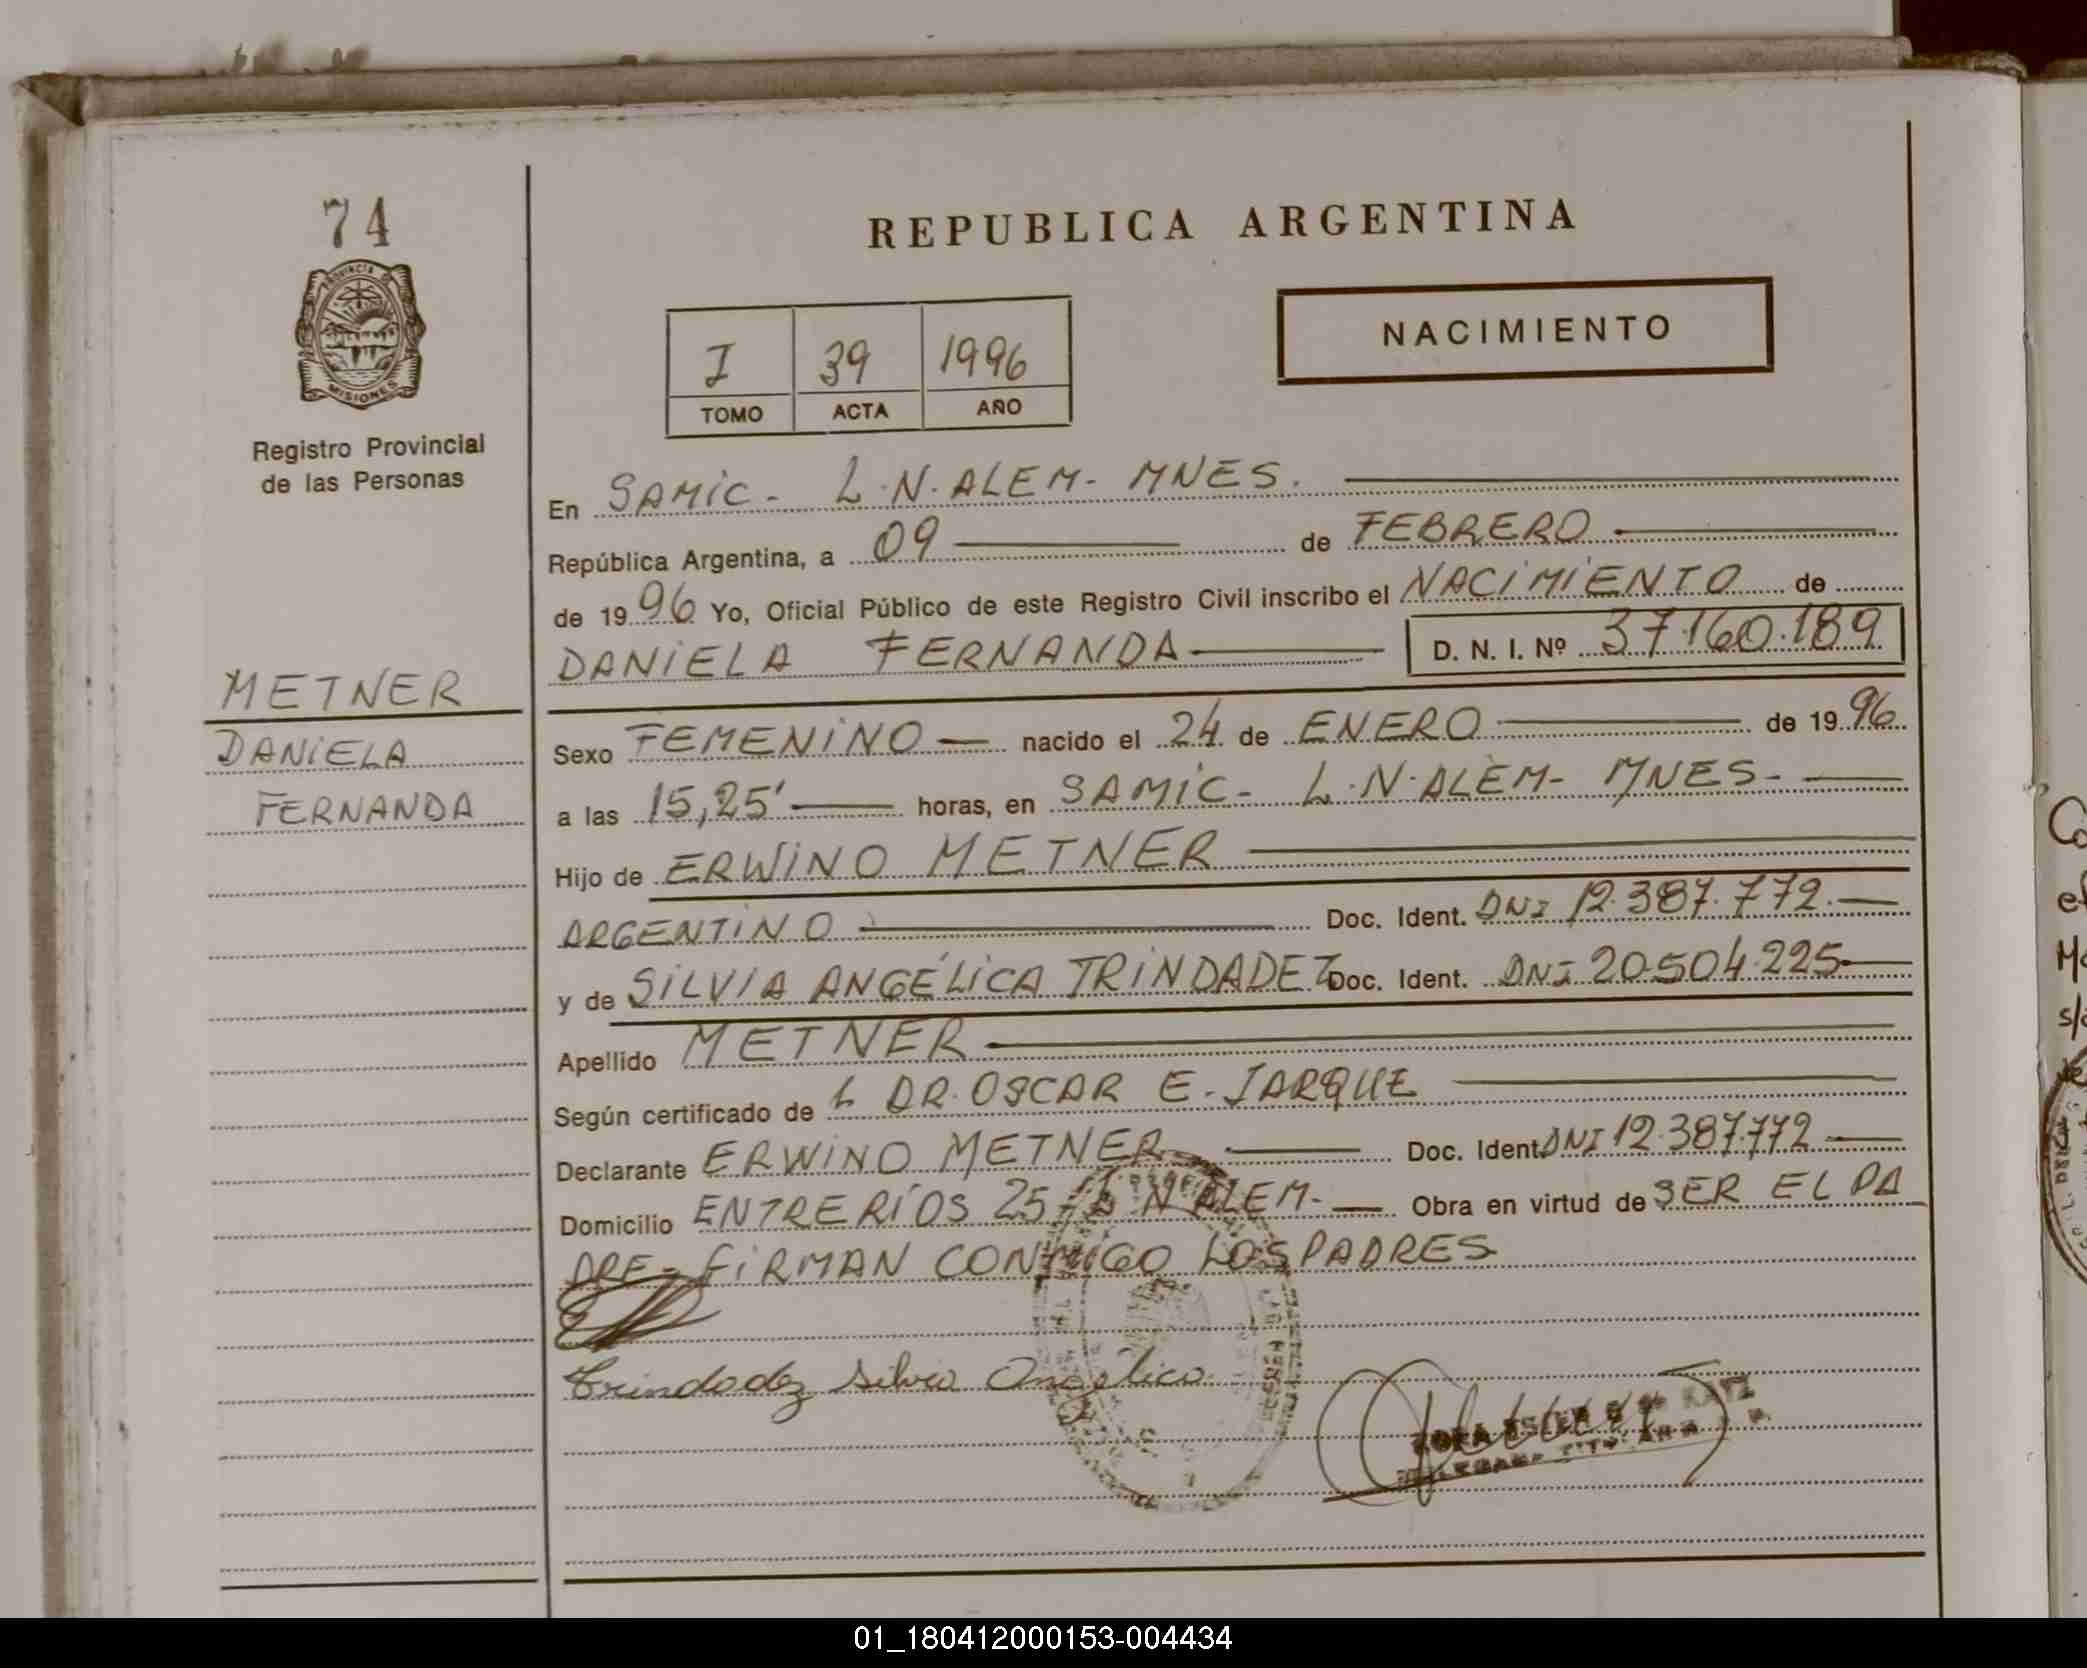 74
PROVINCIA DE
MISIONES
Registro Provincial
de las Personas
METNER
DANIELA
FERNANDA
REPUBLICA ARGENTINA
I 39 1996
TOMO ACTA AÑO
NACIMIENTO
En SAMIC - L.N. ALEM - MNES.
República Argentina, a 09 de FEBRERO
de 1996 Yo, Oficial Público de este Registro Civil inscribo el NACIMIENTO de
DANIELA FERNANDA D. N. I. Nº 37.160.189
Sexo FEMENINO nacido el 24 de ENERO de 1996
a las 15,25' horas, en SAMIC - L.N. ALEM - MNES -
Hijo de ERWINO METNER
ARGENTINO Doc. Ident. DNI 12.387.772.
y de SILVIA ANGÉLICA TRINDADEZ Doc. Ident. DNI 20.504.225
Apellido METNER
Según certificado de L DR. OSCAR E. JARQUE
Declarante ERWINO METNER Doc. Ident. DNI 12.387.772
Domicilio ENTRE RÍOS 25 - L N ALEM - Obra en virtud de SER EL PA
DRE - FIRMAN CONMIGO LOS PADRES
Trindadez Silvia Angélica
01_180412000153-004434